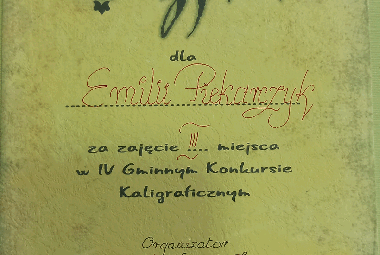 dla
Emilii Piekarczyk
za zajęcie III miejsca
w IV Gminnym Konkursie
Kaligraficznym
Organizator